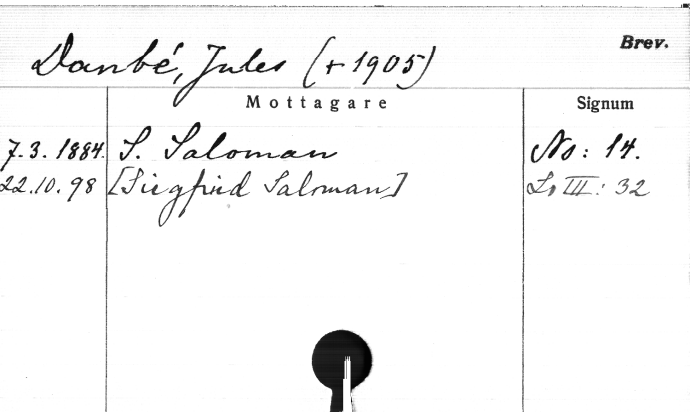 Danbé, Jules (+ 1905)
Brev.
Mottagare
Signum
7.3. 1884. S. Saloman No: 14.
22.10. 98 [Siegfrid Saloman] Lo III: 32